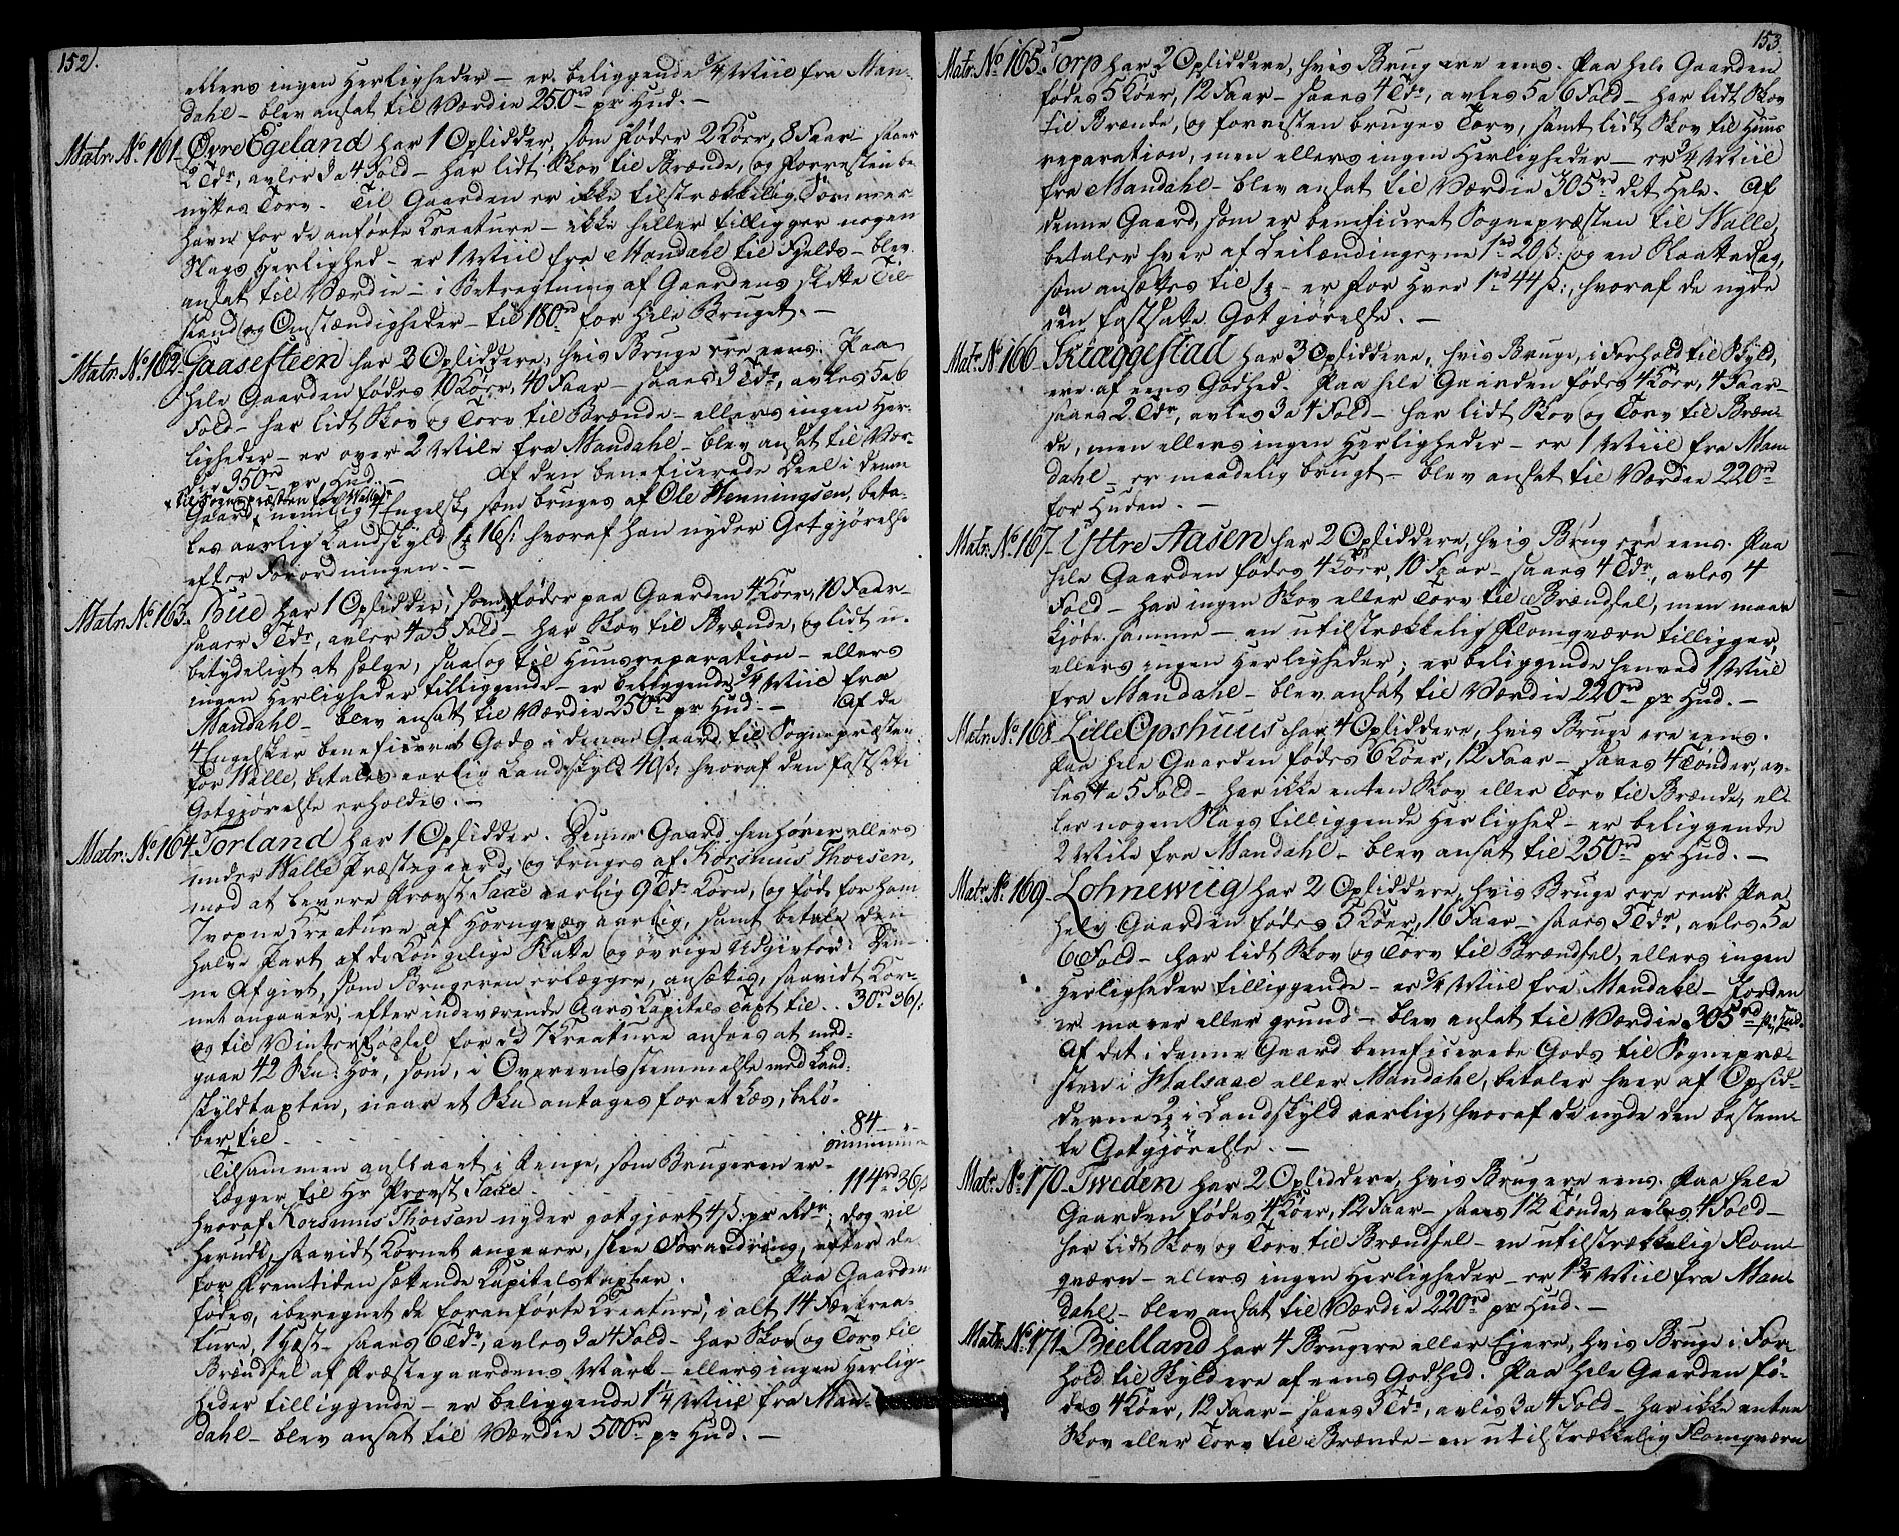 152.
ellers ingen Herligheder – er beliggende 3/4 Miil fra Man-
dahl – blev ansat til Værdie 250rd pr Hud. –
Matr. No. 161. Øvre Egeland har 1 Opsidder, som føder 2 Køer, 8 Faar – saaer
2 Tdr, avler 3 a 4 Fold – har lidt Skov til Brænde, og forresten be-
nyttes Torv. Til Gaarden er ikke tilstrækkelig Sommer-
havn for de anførte Kreature – ikke heller tilligger nogen
Slags Herlighed – er 1 Miil fra Mandahl til Fjelds – blev
ansat til Værdie – i Betragtning af Gaardens slette Til-
stand og Omstændigheder – til 180rd for hele Bruget. –
Matr. No. 162. Gaasesteen har 3 Opsiddere, hvis Bruge ere eens. Paa
hele Gaarden fødes 10 Køer, 40 Faar – saaes 3 Tdr, avles 5 a 6
Fold – har lidt Skov og Torv til Brænde – ellers ingen Her-
ligheder – er over 2 Mile fra Mandahl – blev ansat til Vær-
die 350rd pr. Hud. – Af den beneficerede Deel i denne
x til Sognepræsten for Walle
Gaard x nemlig 4 Engelsk, som bruges af Ole Henningsen, beta-
les aarlig Landskyld 16ß: hvoraf han nyder Godtgjørelse
efter Forordningen. –
Matr. No. 163. Bue har 1 Opsidder, som føder paa Gaarden 4 Køer, 10 Faar –
saaer 3 Tdr, avler 4 a 5 Fold – har Skov til Brænde, og lidt u-
betydeligt at sælge, saa og til Huusreparation – ellers
ingen Herligheder tilliggende – er beliggende 3/4 Miil fra
Mandahl – blev ansat til Værdie 250rd pr Hud. – Af de
4 Engelsker beneficeret Gods i denne Gaard til Sognepræsten
for Walle, betales aarlig Landskyld 40ß; hvoraf den fastsatte
Godtgjørelse erholdes. –
Matr. No. 164. Torland har 1 Opsidder. Denne Gaard henhører ellers
under Walle Præstegaard, og bruges af Korsmus Thorsen,
mod at levere Provst Saxe aarlig 9 Tdr Korn, og føde for ham
7 voxne Kreature af Hornqvæg aarlig, samt betale den
halve Part af de Kongelige Skatte og øvrige Udgivter. Den-
ne Afgivt, som Brugeren erlægger, ansættes, saavidt Kor-
net angaaer, efter indeværende Aars Kapitels Taxt til . 30rd 36ß:
og til Vinterfødsel for de 7 Kreature ansees at med-
gaae 42 Skd: Høe, som, i Overeensstemmelse med Land-
skyldtaxten, naar et Skd antages for et Læs, belø-
ber til . . . . . . . . . . 84 –
Tilsammen anslaaet i Penge, som Brugeren er-
lægger til Hr Provst Saxe . . . . . . 114rd 36ß
hvoraf Korsmus Thorsen nyder godtgjort 4ß: pr Rdr, dog vil
herudi, saavidt Kornet angaaer, skee Forandring, efter de
for Fremtiden sættende Kapitelstaxter. Paa Gaarden
fødes, iberegnet de foranførte Kreature, i alt 14 Fækrea-
ture, 1 Hest – saaes 6 Tdr, avles 3 a 4 Fold – har Skov og Torv til
Brændsel af Præstegaardens Mark – ellers ingen Herlig-
heder tilliggende – er beliggende 1 1/4 Miil fra Man-
dahl – blev ansat til Værdie 500rd pr Hud. –
153.
Matr. No. 165. Torp har 2 Opsiddere, hvis Brug ere eens. Paa hele Gaarden
fødes 5 Køer, 12 Faar – saaes 4 Tdr, avles 5 a 6 Fold – har lidt Skov
til Brænde, og forresten bruges Torv, samt lidt Skov til Huus-
reparation, men ellers ingen Herligheder – er 3/4 Miil
fra Mandahl – blev ansat til Værdie 305rd det Hele. Af
denne Gaard, som er beneficeret Sognepræsten til Walle,
betaler hver af Leilændingerne 1rd 20ß: og en Slaattedag,
som ansættes til – er for hver 1rd 44ß:, hvoraf de nyde
den fastsatte Godtgjørelse. –
Matr. No. 166. Skiæggestad har 3 Opsiddere, hvis Bruge, i Forhold til Skyld,
ere af eens Godhed. Paa hele Gaarden fødes 4 Køer, 4 Faar –
saaes 2 Tdr, avles 3 a 4 Fold – har lidt Skov og Torv til Bræn-
de, men ellers ingen Herligheder – er 1 Miil fra Man-
dahl – er maadelig brugt – blev ansat til Værdie 220rd
for Huden. –
Matr. No. 167. Yttre Aasen har 2 Opsiddere, hvis Brug ere eens. Paa
hele Gaarden fødes 4 Køer, 10 Faar – saaes 4 Tdr, avles 4
Fold – har ingen Skov eller Torv til Brændsel, men maae
kjøbe samme – en utilstrækkelig Flomqværn tilligger,
ellers ingen Herligheder; er beliggende henved 1 Miil
fra Mandahl – blev ansat til Værdie 220rd pr Hud. –
Matr. No. 168. Lille Opshuus har 4 Opsiddere, hvis Bruge ere eens.
Paa hele Gaarden fødes 6 Køer, 12 Faar – saaes 4 Tønder, av-
les 4 a 5 Fold – har ikke enten Skov eller Torv til Brænde, el-
ler nogen Slags tilliggende Herlighed – er beliggende
2 Mile fra Mandahl – blev ansat til 250rd pr Hud. –
Matr. No. 169. Lohnewiig har 2 Opsiddere, hvis Bruge ere eens. Paa
hele Gaarden fødes 5 Køer, 16 Faar – saaes 3 Tdr, avles 5 a
6 Fold – har lidt Skov og Torv til Brændsel, ellers ingen
Herligheder tilliggende – er 3/4 Miil fra Mandahl – Jorden
er mager eller grund – blev ansat til Værdie 305rd pr Hud.
Af det i denne Gaard beneficerede Gods til Sognepræ-
sten i Halsaae eller Mandahl, betaler hver af Opsid-
derne i Landskyld aarlig, hvoraf de nyde den bestem-
te Godtgjørelse. –
Matr. No. 170. Tweden har 2 Opsiddere, hvis Brug ere eens. Paa hele
Gaarden fødes 4 Køer, 12 Faar – saaes 1 1/2 Tønde, avles 4 Fold –
har lidt Skov og Torv til Brændsel – en utilstrækkelig Flom-
qværn – ellers ingen Herligheder – er 1 3/4 Miil fra Man-
dahl – blev ansat til Værdie 220rd pr Hud. –
Matr. No. 171. Bielland har 4 Brugere eller Ejere, hvis Bruge i For-
hold til Skyld ere af eens Godhed. Paa hele Gaarden fø-
des 4 Køer, 12 Faar – saaes 3 Tdr, avles 3 a 4 Fold – har ikke enten
Skov eller Torv til Brænde – en utilstrækkelig Flomqværn